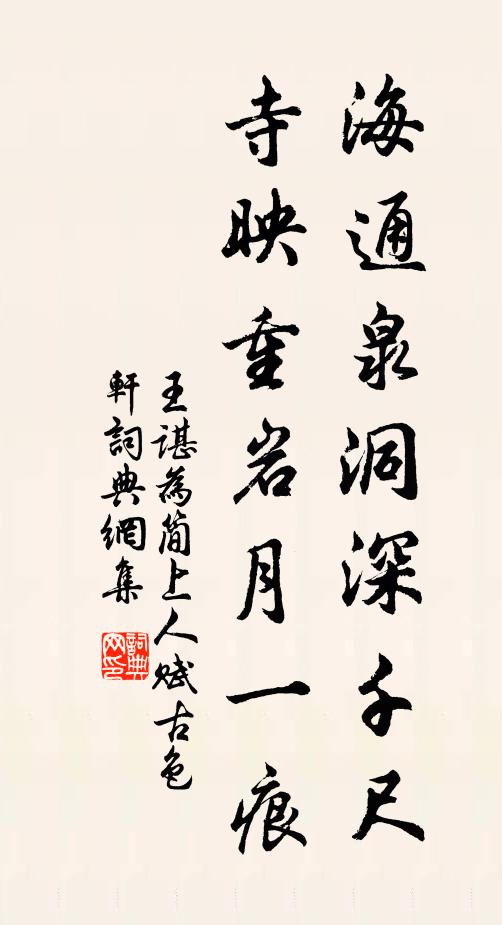 海通泉洞深千尺
寺映重岩月一痕
王諶為簡上人賦古色
軒詞典網集
詞典
网印